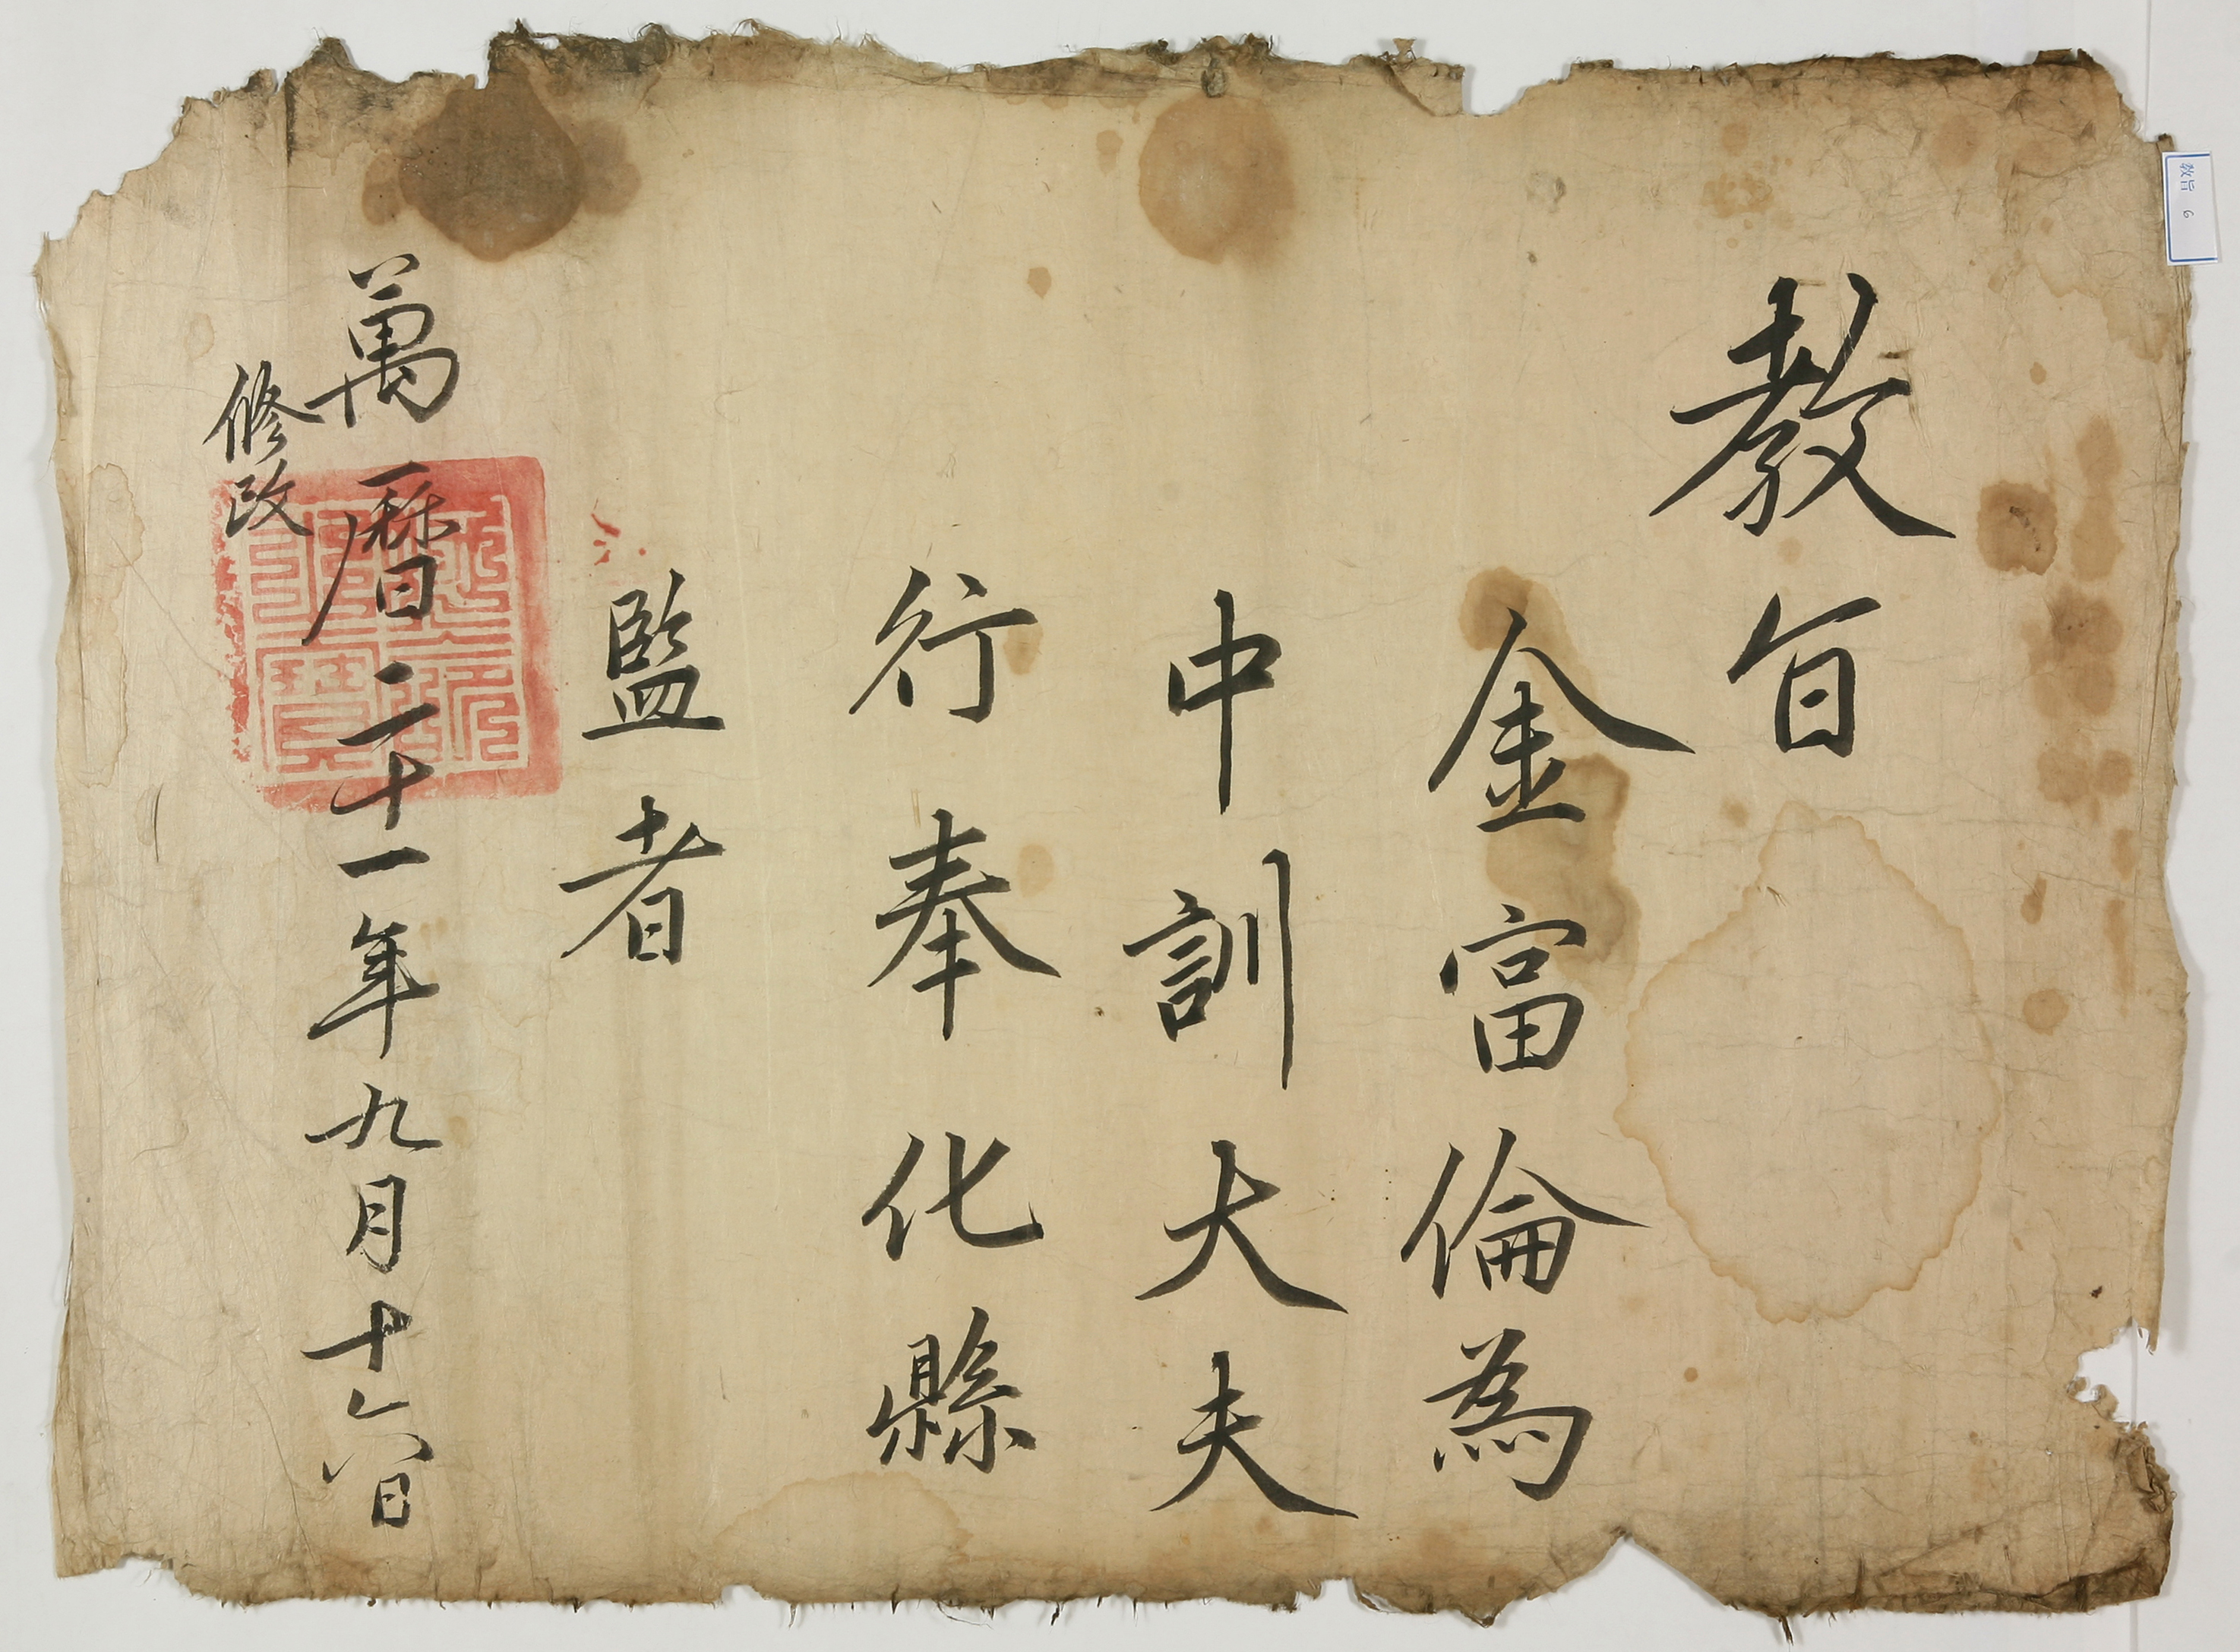 教旨
金富倫為
中訓大夫
行奉化縣
監者
萬曆二十一年九月十六日
修改
教旨 6